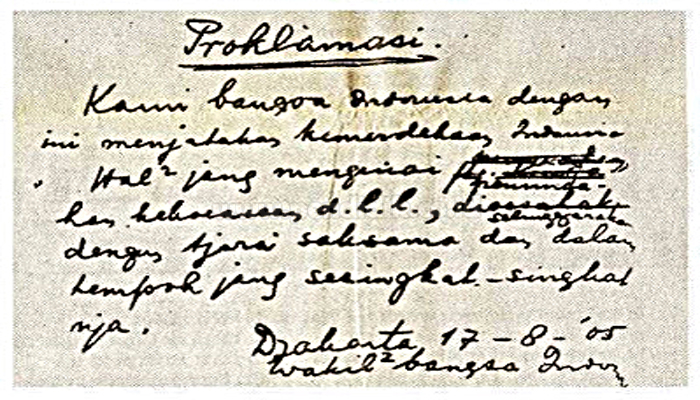 Proklamasi.
Kami bangsa Indonesia dengan
ini menjatakan kemerdekaan Indonesia
Hal² jang mengenai
pemindahan
kekoeasaan d.l.l., dioesahakan
selenggarakan
dengan tjara saksama dan dalam
tempoh jang sesingkat-singkat
nja.
Djakarta, 17-8-'05
Wakil² bangsa Indon